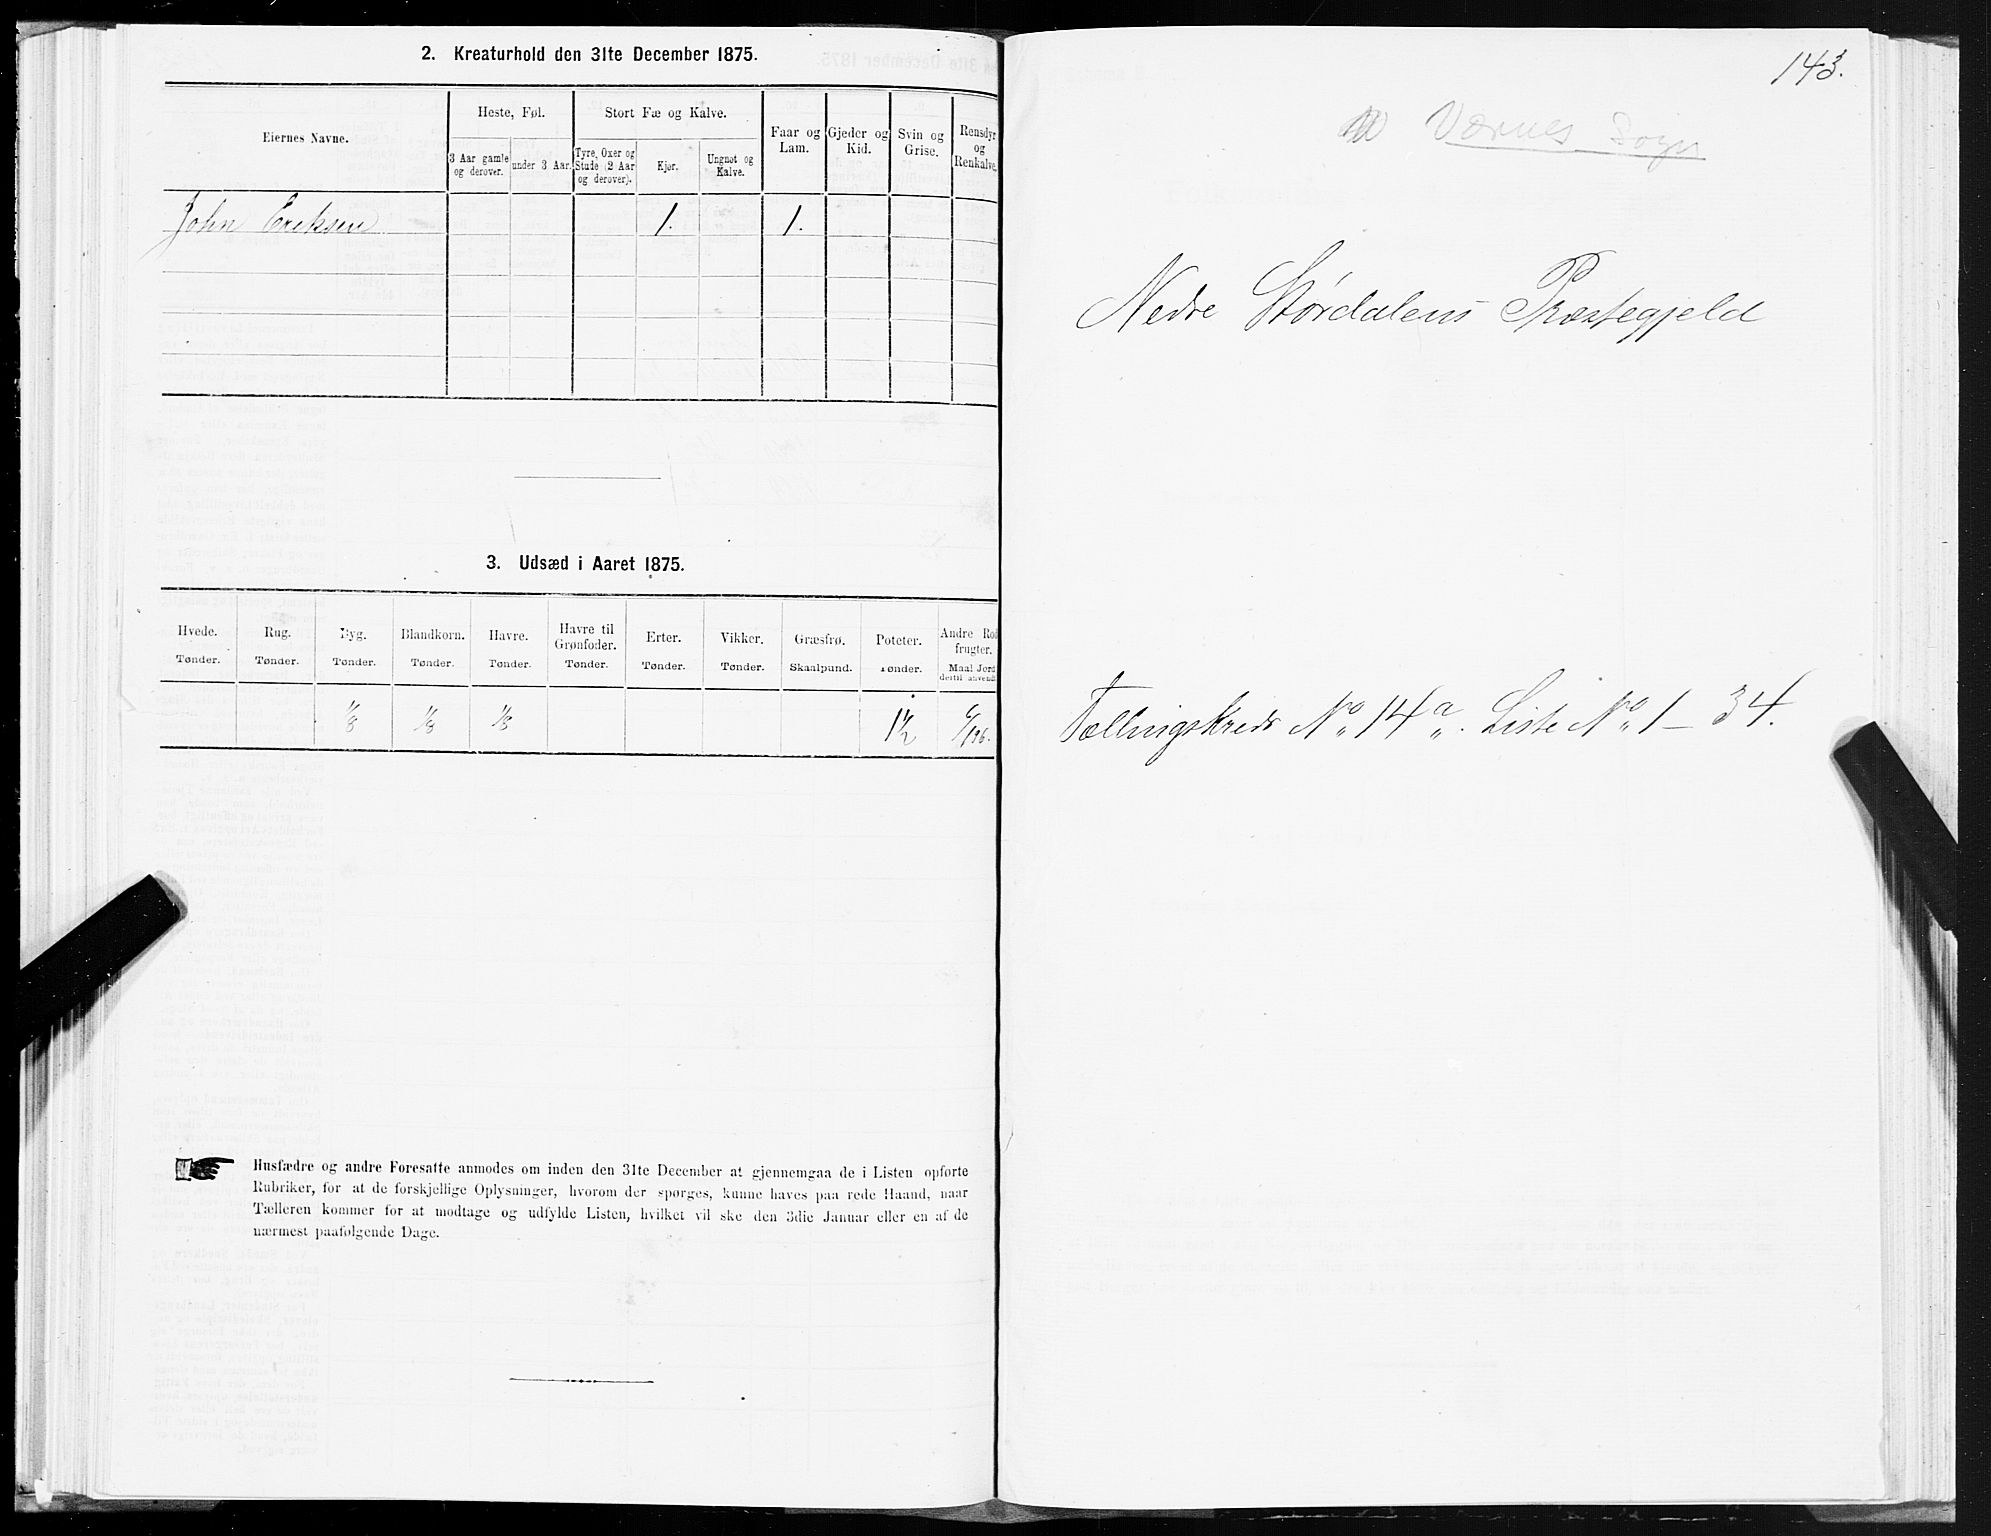 2. Kreaturhold den 31te December 1875.
Eiernes Navne.
Heste, Føl.
Stort Fæ og Kalve.
3 Aar gamle og derover.
under 3 Aar.
Tyre, Oxer og Stude (2 Aar og derover).
Kjør.
Ungnøt og Kalve.
Faar og Lam.
Gjeder og Kid.
Svin og Grise.
Rensdyr og Renkalve.
John Eriksen 1. 1.
3. Udsæd i Aaret 1875.
Hvede. Rug. Byg. Blandkorn. Havre. Havre til Grønfoder. Erter. Vikker. Græsfrø. Poteter. Andre Rodfrugter.
Tønder. Tønder. Tønder. Tønder. Tønder. Tønder. Tønder. Tønder. Skaalpund. Tønder. Maal Jord dertil anvendt
1/8 1/8 1/8 1 1/2
Husfædre og andre Foresatte anmodes om inden den 31te December at gjennemgaa de i Listen opførte
Rubriker, for at de forskjellige Oplysninger, hvorom der spørges, kunne haves paa rede Haand, naar
Tælleren kommer for at modtage og udfylde Listen, hvilket vil ske den 3die Januar eller en af de
nærmest paafølgende Dage.
143.
Værnes Sogn
Nedre Størdalens Præstegjeld
Tællingskreds No 14a. Liste No 1 – 34.